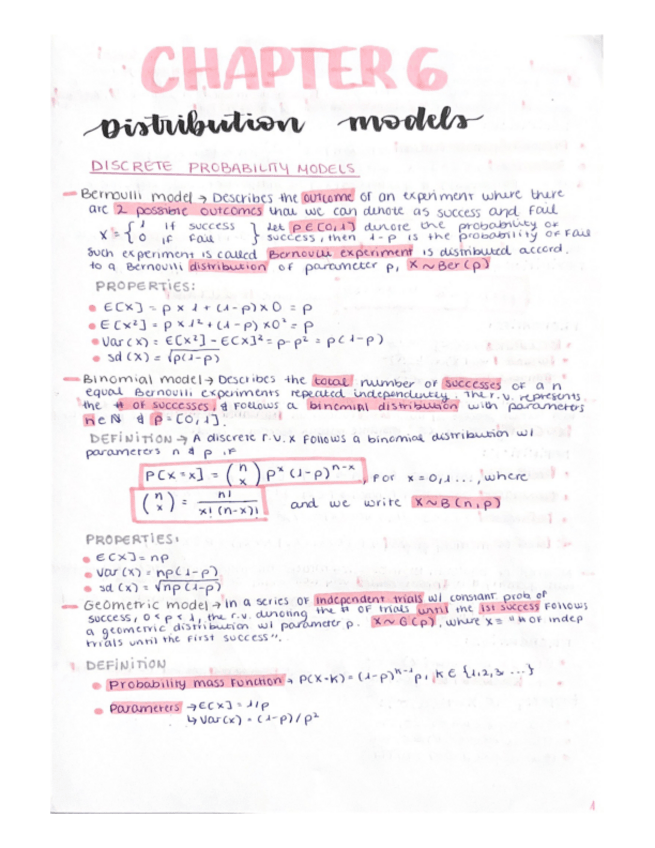 CHAPTER 6
Distribution models
DISCRETE PROBABILITY MODELS
— Bernoulli model → Describes the outcome of an experiment where there
are 2 possible outcomes that we can denote as success and fail
X = { 1 if success } let p ∈ [0,1] denote the probability of
0 if fail success, then 1-p is the probability of fail
Such experiment is called Bernoulli experiment is distributed accord.
to a Bernoulli distribution of parameter p, X ~ Ber(p)
PROPERTIES:
• E[X] = p x 1 + (1-p) x 0 = p
• E[X²] = p x 1² + (1-p) x 0² = p
• Var(X) = E[X²] - E[X]² = p - p² = p(1-p)
• sd(X) = √p(1-p)
— Binomial model → Describes the total number of successes of a n
equal Bernoulli experiments repeated independently. The r.v. represents
the # of successes, & follows a binomial distribution with parameters
n ∈ N & p = [0,1].
DEFINITION → A discrete r.v. X follows a binomial distribution w/
parameters n & p if
P[X=x] = (n x) pˣ (1-p)ⁿ⁻ˣ, for x = 0,1 ..., where
(n x) = n! / x!(n-x)! and we write X ~ B(n,p)
PROPERTIES:
• E[X] = np
• Var(X) = np(1-p)
• sd(X) = √np(1-p)
— Geometric model → in a series of independent trials w/ constant prob of
success, 0 < p < 1, the r.v. denoting the # of trials until the 1st success follows
a geometric distribution w/ parameter p. X ~ G(p), where X = "# of indep
trials until the first success".
DEFINITION
• Probability mass function → P(X=K) = (1-p)ᴷ⁻¹p, K ∈ {1,2,3 ...}
• Parameters → E[X] = 1/p
↳ Var(X) = (1-p)/p²
1